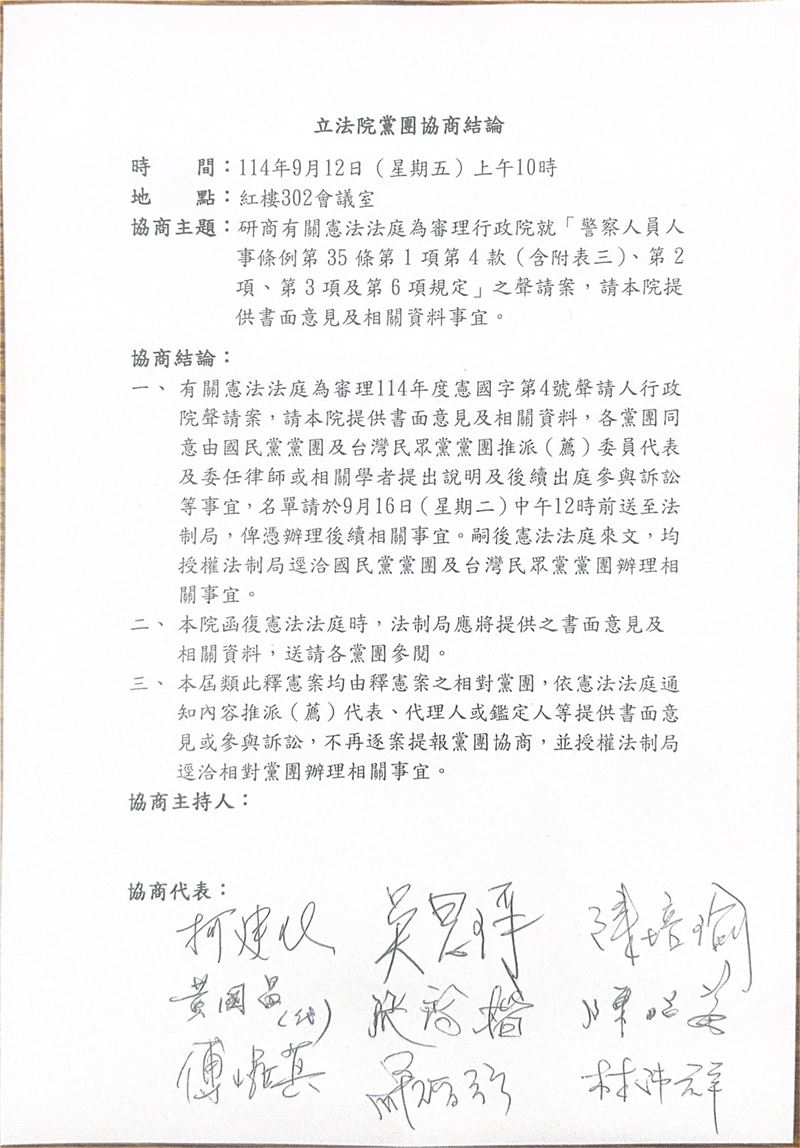 立法院黨團協商結論
時　　間：114年9月12日（星期五）上午10時
地　　點：紅樓302會議室
協商主題：研商有關憲法法庭為審理行政院就「警察人員人
事條例第35條第1項第4款（含附表三）、第2
項、第3項及第6項規定」之聲請案，請本院提
供書面意見及相關資料事宜。
協商結論：
一、有關憲法法庭為審理114年度憲國字第4號聲請人行政
院聲請案，請本院提供書面意見及相關資料，各黨團同
意由國民黨黨團及台灣民眾黨黨團推派（薦）委員代表
及委任律師或相關學者提出說明及後續出庭參與訴訟
等事宜，名單請於9月16日（星期二）中午12時前送至法
制局，俾憑辦理後續相關事宜。嗣後憲法法庭來文，均
授權法制局逕洽國民黨黨團及台灣民眾黨黨團辦理相
關事宜。
二、本院函復憲法法庭時，法制局應將提供之書面意見及
相關資料，送請各黨團參閱。
三、本屆類此釋憲案均由釋憲案之相對黨團，依憲法法庭通
知內容推派（薦）代表、代理人或鑑定人等提供書面意
見或參與訴訟，不再逐案提報黨團協商，並授權法制局
逕洽相對黨團辦理相關事宜。
協商主持人：
協商代表：
柯建 吳思 陳培瑜
黃國昌（代） 陳
傅崐萁 林沛祥